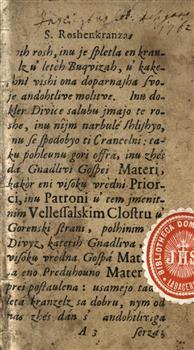 S. Roshenkranza
vih rosh, inu je spletla en kran-
lz u' letéh Buqvizah, u' kake-
hni vishi ona doparnasha svo-
je andohtlive molitve. Inu do-
kler Divice salubu jmajo te ro-
she, inu nijm narbule shlishjo,
nu se spodobijo ti Crancelni: ta-
ku pohleunu gori offra, inu zhés
dá Gnadlivi Gospei Materi,
kakòr eni visoku vredni Prior-
ci, inu Patroni u' tem jmenit-
nim Vellessalskim Clostru u'
Gorenski strani, polhnim
Divyz, katerih Gnadliva,
visoku vredna. Gospá Mat
za eno Preduhouno Mater
prei postaulena: usamejo ta
letá kranzelz sa dobru, nym od
nas zhés dan s' andohtlivga
A 3 serza;
BIBLIOTHECA DOM
LABACENS
IHS